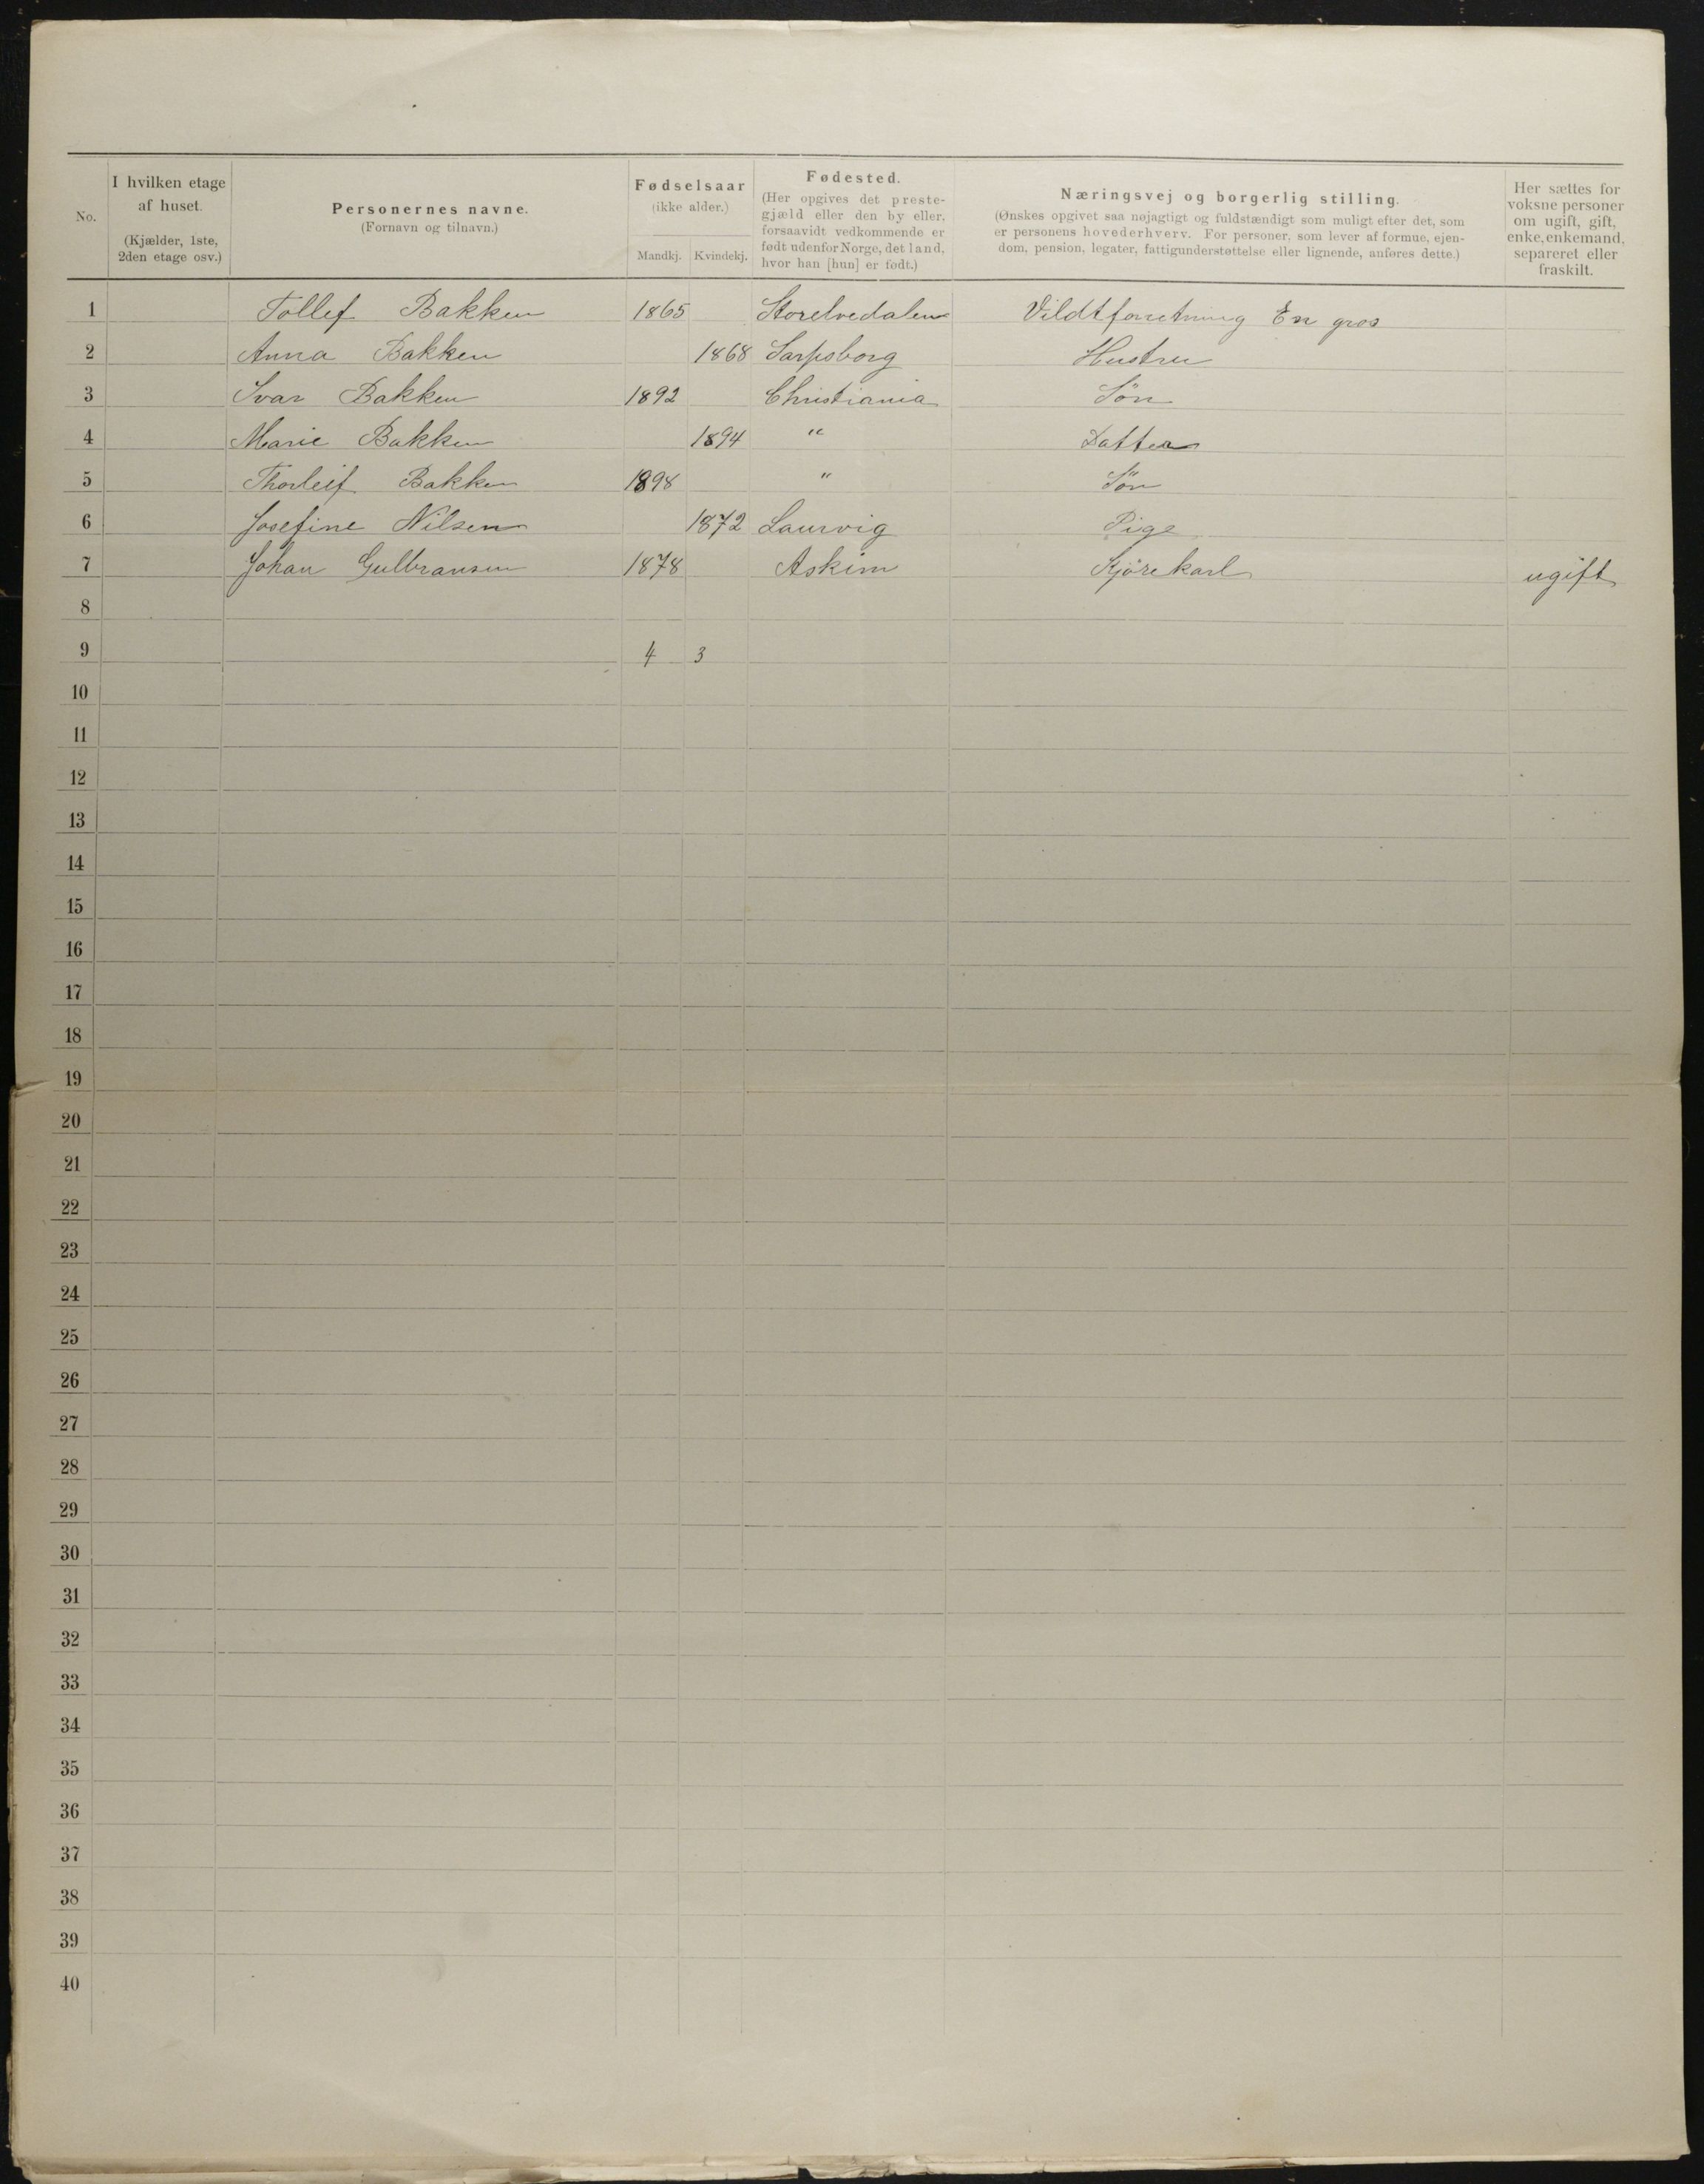 No.
I hvilken etage
af huset.
(Kjælder, 1ste,
2den etage osv.)
Personernes navne.
(Fornavn og tilnavn.)
Fødselsaar
(ikke alder.)
Mandkj. Kvindekj.
Fødested.
(Her opgives det preste-
gjæld eller den by eller,
forsaavidt vedkommende er
født udenfor Norge, det land,
hvor han [hun] er født.)
Næringsvej og borgerlig stilling.
(Ønskes opgivet saa nøjagtigt og fuldstændigt som muligt efter det, som
er personens hovederhverv. For personer, som lever af formue, ejen-
dom, pension, legater, fattigunderstøttelse eller lignende, anføres dette.)
Her sættes for
voksne personer
om ugift, gift,
enke, enkemand,
separeret eller
fraskilt.
1 Tollef Bakken 1865 Storelvedalen Vildtforretning En gros
2 Anna Bakken 1868 Sarpsborg Hustru
3 Ivar Bakken 1892 Christiania Sön
4 Marie Bakken 1894 " Datter
5 Thorleif Bakken 1898 " Sön
6 Josefine Nilsen 1872 Laurvig Pige
7 Johan Gulbransen 1878 Askim Kjörekarl ugift
8
9 4 3
10
11
12
13
14
15
16
17
18
19
20
21
22
23
24
25
26
27
28
29
30
31
32
33
34
35
36
37
38
39
40